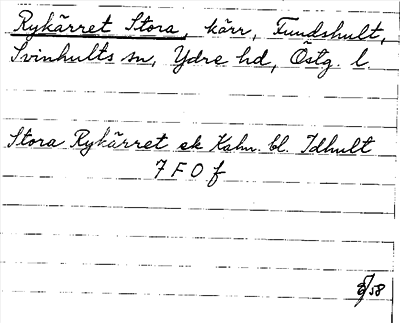 Rykärret Stora, kärr, Fundshult,
Svinhults sn, Ydre hd, Östg. l.
Stora Rykärret ek Kshu. bl. Idhult
7 F 0 f
58